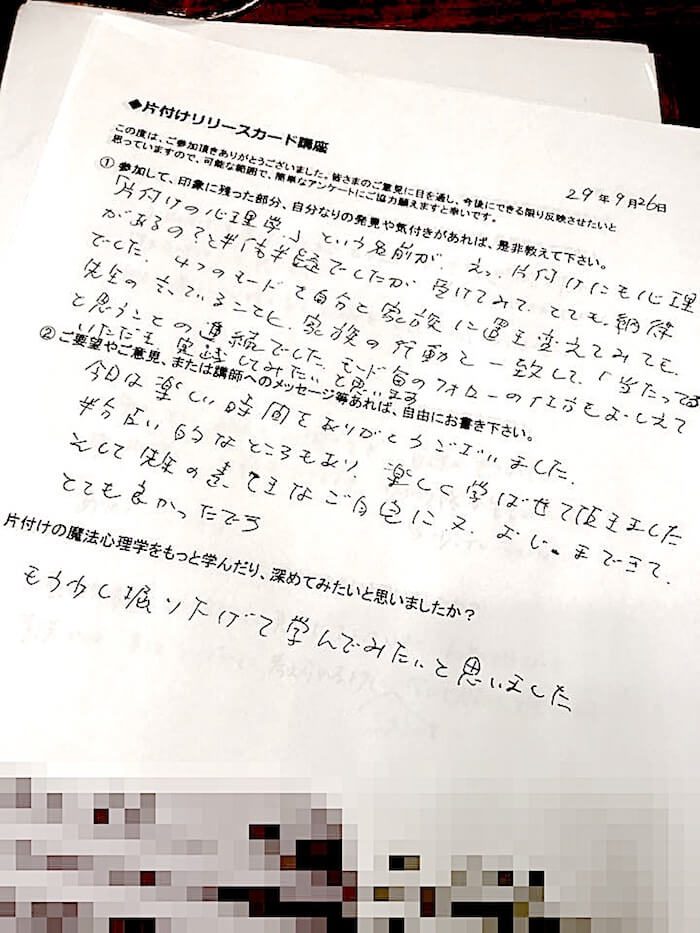 ◆片付けリリースカード講座
この度は、ご参加頂きありがとうございました。皆さまのご意見に目を通し、今後にできる限り反映させたいと
思っていますので、可能な範囲で、簡単なアンケートにご協力願えますと幸いです。
29年9月26日
① 参加して、印象に残った部分、自分なりの発見や気付きがあれば、是非教えて下さい。
「片付けの心理学」という名前が、えっ、片付けにも心理
があるの?と半信半疑でしたが 受けてみて、とても納得
でした。4つのモードで自分と家族に置き変えてみても、
先生の言っていることと、家族の行動と一致して、「当たってる」
と思うことの連続でした。モード毎のフォローの仕方もおしえて
いただき実践してみたいと思います
② ご要望やご意見、または講師へのメッセージ等あれば、自由にお書き下さい。
今日は楽しい時間をありがとうございました。
半分占い的なところもあり 楽しく学ばせて頂きました
そして先生の素てきなご自宅に又、おじゃまできて、
とても良かったです
片付けの魔法心理学をもっと学んだり、深めてみたいと思いましたか?
もう少し堀り下げて学んでみたいと思いました